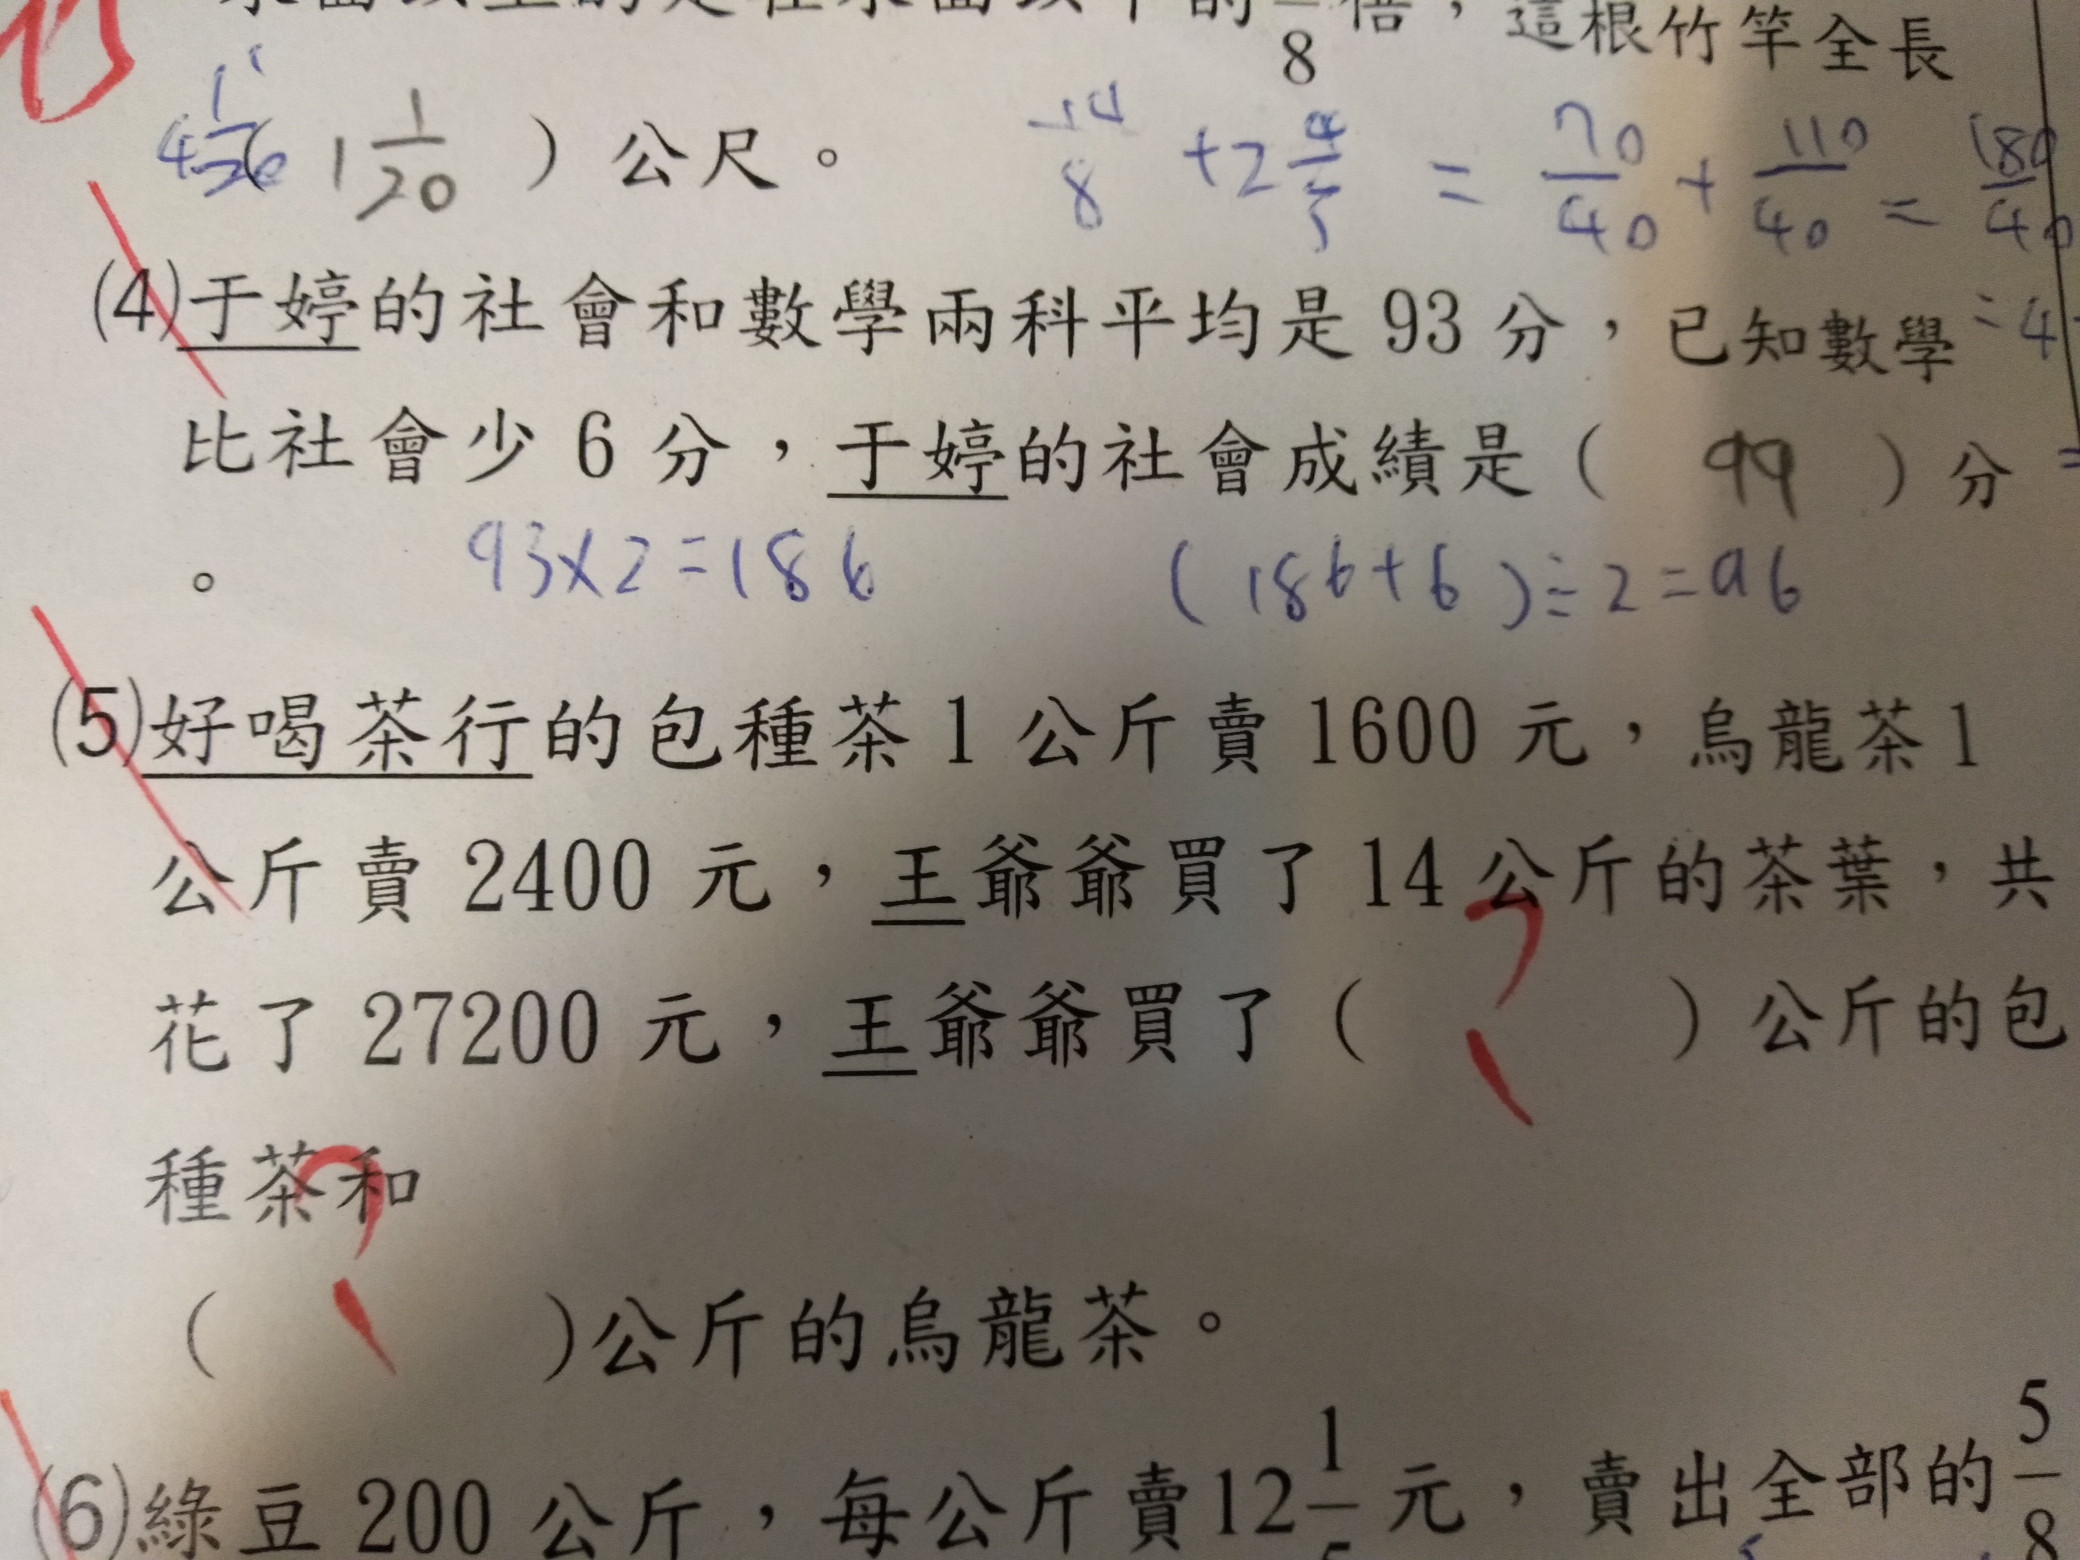 的是在水面以下的 8 倍，這根竹竿全長
4 1/20 ( 1 1/20 ) 公尺。 14/8 + 2 = 70/40 + 110/40 = 180/40
(4)于婷的社會和數學兩科平均是 93 分，已知數學 = 4
比社會少 6 分，于婷的社會成績是 ( 99 ) 分 =
。 93×2=186 (186+6)÷2=96
(5)好喝茶行的包種茶 1 公斤賣 1600 元，烏龍茶 1
公斤賣 2400 元，王爺爺買了 14 公斤的茶葉，共
花了 27200 元，王爺爺買了 ( ? ) 公斤的包
種茶和
( ? )公斤的烏龍茶。
(6)綠豆 200 公斤，每公斤賣12 1/5 元，賣出全部的 5/8